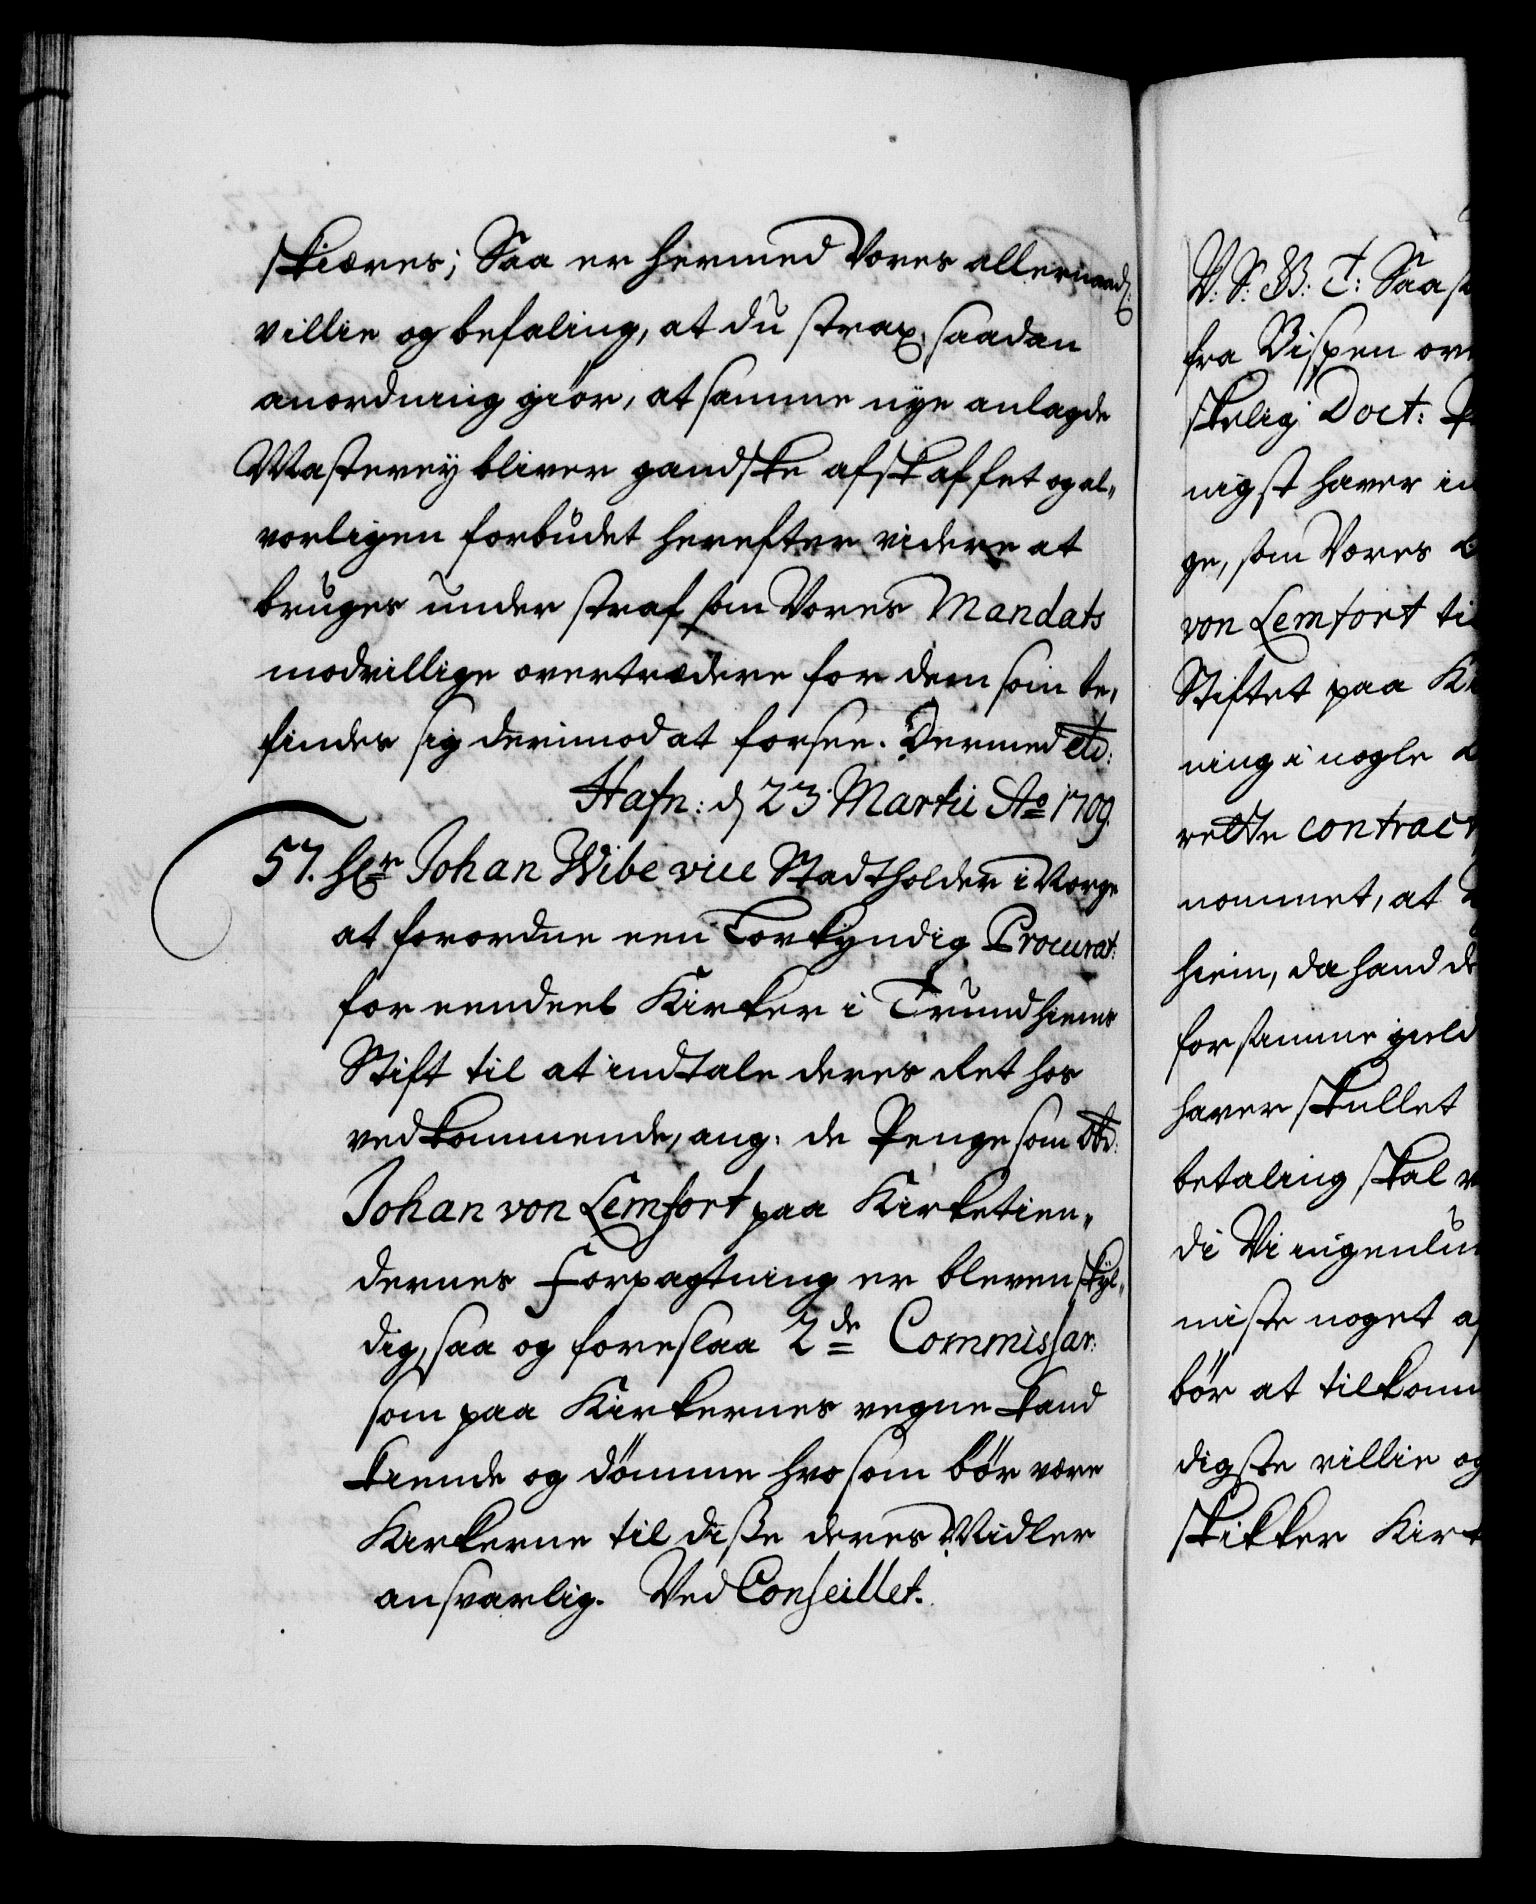 skiæres; Saa er hermed Vores allernaad:
villie og befaling, at du strax saadan
anordning giör, at samme nye anlagde
bliver gandske afskaffet og al,
vorligen forbudet herefter videre at
bruges under straf som Vores Mandats
modvillige overtrædere for dem som be,
findes sig derimod at forsee. Dermed etc:
Hafn: d 23 Martii Ao 1709.
57. Hr Johan Wibe vice Stadtholder i Norge
at forordne een Lovkyndig Procurat:
for eendeel Kirker i Trundhiems
Stift til at indtale deres Ret hos
vedkommende, ang: de Penge som
Johan von Lemfort paa Kirketien,,
dernes Forpagtning er bleven skyl,,
dig, saa og foreslaa 2de Commissar:
som paa Kirkernes vegne kand
kiende og dömme hvo som bör være
Kirkerne til disse deres Midler
ansvarlig. Ved Conseillet.
V: S: B: T: Saa
fra Bispen
skelig Doct:
nigst haver
ge, som Vores
von Lemfort
Stiftet paa
ning i nogle
rette contract
nommet, at
hiem, da hand
for samme gield
haver skullet
betaling skal
di Vi ingenlun
miste noget
bör at tilkom
digste villie og
skikker Kirk